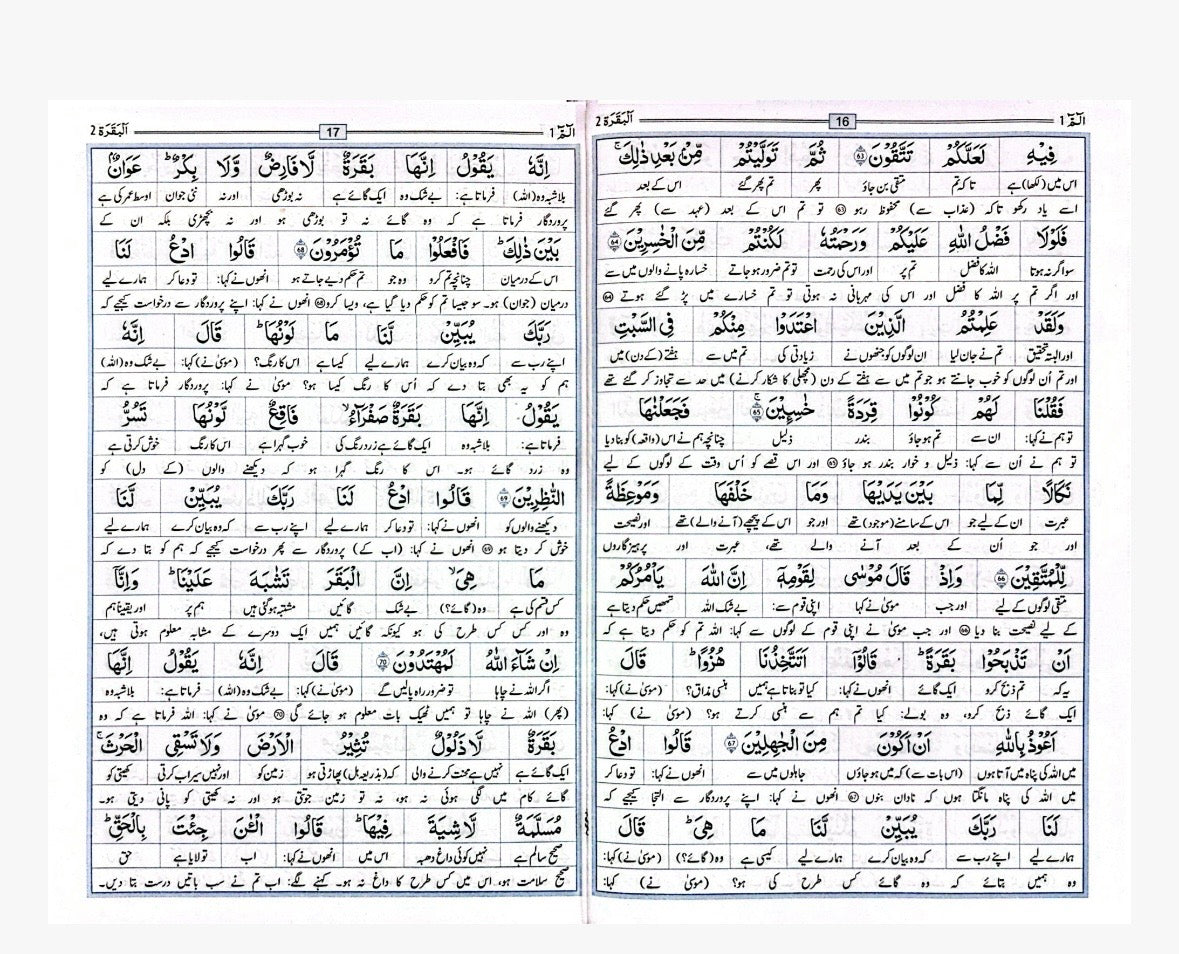 الٓمّٓ 1
16
اَلْبَقَرَة 2
فِيْهِ لَعَلَّكُمْ تَتَّقُوْنَ ۶۳ ثُمَّ تَوَلَّيْتُمْ مِّنْۢ بَعْدِ ذٰلِكَ ۚ
اس میں (لکھا) ہے تاکہ تم متقی بن جاؤ پھر تم پھر گئے اس کے بعد
اسے یاد رکھو تاکہ (عذاب سے) محفوظ رہو ۶۳ تو تم اس کے بعد (عہد سے) پھر گئے
فَلَوْلَا فَضْلُ اللّٰهِ عَلَيْكُمْ وَرَحْمَتُهٗ لَكُنْتُمْ مِّنَ الْخٰسِرِيْنَ ۶۴
سو اگر نہ ہوتا اللہ کا فضل تم پر اور اس کی رحمت تو تم ضرور ہو جاتے خسارہ پانے والوں میں سے
اور اگر تم پر اللہ کا فضل اور اس کی مہربانی نہ ہوتی تو تم خسارے میں پڑ گئے ہوتے ۶۴
وَلَقَدْ عَلِمْتُمُ الَّذِيْنَ اعْتَدَوْا مِنْكُمْ فِى السَّبْتِ
اور البتہ تحقیق تم نے جان لیا ان لوگوں کو جنھوں نے زیادتی کی تم میں سے ہفتے (کے دن) میں
اور تم اُن لوگوں کو خوب جانتے ہو جو تم میں سے ہفتے کے دن (مچھلی کا شکار کرنے) میں حد سے تجاوز کر گئے تھے
فَقُلْنَا لَهُمْ كُوْنُوْا قِرَدَةً خٰسِـِٕيْنَ ۶۵ فَجَعَلْنٰهَا
تو ہم نے کہا: ان سے تم ہو جاؤ بندر ذلیل چنانچہ ہم نے اس (واقعہ) کو بنا دیا
تو ہم نے اُن سے کہا: ذلیل و خوار بندر ہو جاؤ ۶۵ اور اس قصے کو اُس وقت کے لوگوں کے لیے
نَكَالًا لِّمَا بَيْنَ يَدَيْهَا وَمَا خَلْفَهَا وَمَوْعِظَةً
عبرت ان کے لیے جو اس کے سامنے (موجود) تھے اور جو اس کے پیچھے (آنے والے) تھے اور نصیحت
اور جو اُن کے بعد آنے والے تھے، عبرت اور پرہیزگاروں
لِّلْمُتَّقِيْنَ ۶۶ وَاِذْ قَالَ مُوْسٰى لِقَوْمِهٖٓ اِنَّ اللّٰهَ يَاْمُرُكُمْ
متقی لوگوں کے لیے اور جب موسیٰ نے کہا اپنی قوم سے: بے شک اللہ تمھیں حکم دیتا ہے
کے لیے نصیحت بنا دیا ۶۶ اور جب موسیٰ نے اپنی قوم کے لوگوں سے کہا: اللہ تم کو حکم دیتا ہے کہ
اَنْ تَذْبَحُوْا بَقَرَةً ؕ قَالُوْٓا اَتَتَّخِذُنَا هُزُوًا ؕ قَالَ
یہ کہ تم ذبح کرو ایک گائے انھوں نے کہا: کیا تو بناتا ہے ہمیں ہنسی مذاق؟ (موسیٰ نے) کہا:
ایک گائے ذبح کرو، وہ بولے: کیا تم ہم سے ہنسی کرتے ہو؟ (موسیٰ نے) کہا:
اَعُوْذُ بِاللّٰهِ اَنْ اَكُوْنَ مِنَ الْجٰهِلِيْنَ ۶۷ قَالُوا ادْعُ
میں اللہ کی پناہ میں آتا ہوں (اس بات سے) کہ میں ہو جاؤں جاہلوں میں سے انھوں نے کہا: تو دعا کر
میں اللہ کی پناہ مانگتا ہوں کہ نادان بنوں ۶۷ انھوں نے کہا: اپنے پروردگار سے التجا کیجیے کہ
لَنَا رَبَّكَ يُبَيِّنْ لَّنَا مَا هِىَ ؕ قَالَ
ہمارے لیے اپنے رب سے کہ وہ بیان کرے ہمارے لیے کیسی ہے وہ (گائے)؟ (موسیٰ نے) کہا:
وہ ہمیں بتائے کہ وہ گائے کس طرح کی ہو؟ (موسیٰ نے) کہا:
الٓمّٓ 1
17
اَلْبَقَرَة 2
اِنَّهٗ يَقُوْلُ اِنَّهَا بَقَرَةٌ لَّا فَارِضٌ وَّلَا بِكْرٌ ؕ عَوَانٌۢ
بلاشبہ وہ (اللہ) فرماتا ہے: بے شک وہ ایک گائے ہے نہ بوڑھی اور نہ نئی جوان اوسط عمر کی ہے
پروردگار فرماتا ہے کہ وہ گائے نہ تو بوڑھی ہو اور نہ بچھڑی بلکہ ان کے
بَيْنَ ذٰلِكَ ؕ فَافْعَلُوْا مَا تُؤْمَرُوْنَ ۶۸ قَالُوا ادْعُ لَنَا
اس کے درمیان چنانچہ تم کرو وہ جو تم حکم دیے جاتے ہو انھوں نے کہا: تو دعا کر ہمارے لیے
درمیان (جوان) ہو۔ سو جیسا تم کو حکم دیا گیا ہے، ویسا کرو ۶۸ انھوں نے کہا: اپنے پروردگار سے درخواست کیجیے کہ
رَبَّكَ يُبَيِّنْ لَّنَا مَا لَوْنُهَا ؕ قَالَ اِنَّهٗ
اپنے رب سے کہ وہ بیان کرے ہمارے لیے کیسا ہے اس کا رنگ؟ (موسیٰ نے) کہا: بے شک وہ (اللہ)
ہم کو یہ بھی بتا دے کہ اُس کا رنگ کیسا ہو؟ موسیٰ نے کہا: پروردگار فرماتا ہے کہ
يَقُوْلُ اِنَّهَا بَقَرَةٌ صَفْرَآءُ ۙ فَاقِعٌ لَّوْنُهَا تَسُرُّ
فرماتا ہے: بلاشبہ وہ ایک گائے ہے زرد رنگ کی خوب گہرا ہے اس کا رنگ خوش کرتی ہے
وہ زرد گائے ہو۔ اس کا رنگ گہرا ہو کہ دیکھنے والوں (کے دل) کو
النّٰظِرِيْنَ ۶۹ قَالُوا ادْعُ لَنَا رَبَّكَ يُبَيِّنْ لَّنَا
دیکھنے والوں کو انھوں نے کہا: تو دعا کر ہمارے لیے اپنے رب سے کہ وہ بیان کرے ہمارے لیے
خوش کر دیتا ہو ۶۹ انھوں نے کہا: (اب کے) پروردگار سے پھر درخواست کیجیے کہ ہم کو بتا دے کہ
مَا هِىَ ۙ اِنَّ الْبَقَرَ تَشٰبَهَ عَلَيْنَا ؕ وَاِنَّآ
کس قسم کی ہے وہ (گائے)؟ بے شک گائیں مشتبہ ہو گئی ہیں ہم پر اور یقیناً ہم
وہ اور کس کس طرح کی ہو کیونکہ گائیں ہمیں ایک دوسرے کے مشابہ معلوم ہوتی ہیں،
اِنْ شَآءَ اللّٰهُ لَمُهْتَدُوْنَ ۷۰ قَالَ اِنَّهٗ يَقُوْلُ اِنَّهَا
اگر اللہ نے چاہا تو ضرور راہ پا لیں گے (موسیٰ نے) کہا: بے شک وہ (اللہ) فرماتا ہے: بلاشبہ وہ
(پھر) اللہ نے چاہا تو ہمیں ٹھیک بات معلوم ہو جائے گی ۷۰ موسیٰ نے کہا: اللہ فرماتا ہے کہ وہ
بَقَرَةٌ لَّا ذَلُوْلٌ تُثِيْرُ الْاَرْضَ وَلَا تَسْقِى الْحَرْثَ ۚ
ایک گائے ہے نہیں ہے محنت کرنے والی کہ (بذریعہ ہل) پھاڑتی ہو زمین کو اور نہیں سیراب کرتی کھیتی کو
گائے کام میں لگی ہوئی نہ ہو، نہ تو زمین جوتتی ہو اور نہ کھیتی کو پانی دیتی ہو۔
مُسَلَّمَةٌ لَّا شِيَةَ فِيْهَا ؕ قَالُوا الْـٰٔنَ جِئْتَ بِالْحَقِّ ؕ
صحیح سالم ہے نہیں کوئی داغ دھبہ اس میں انھوں نے کہا: اب تو لایا ہے حق
صحیح سلامت ہو، اس میں کس طرح کا داغ نہ ہو۔ کہنے لگے: اب تم نے سب باتیں درست بتا دیں۔